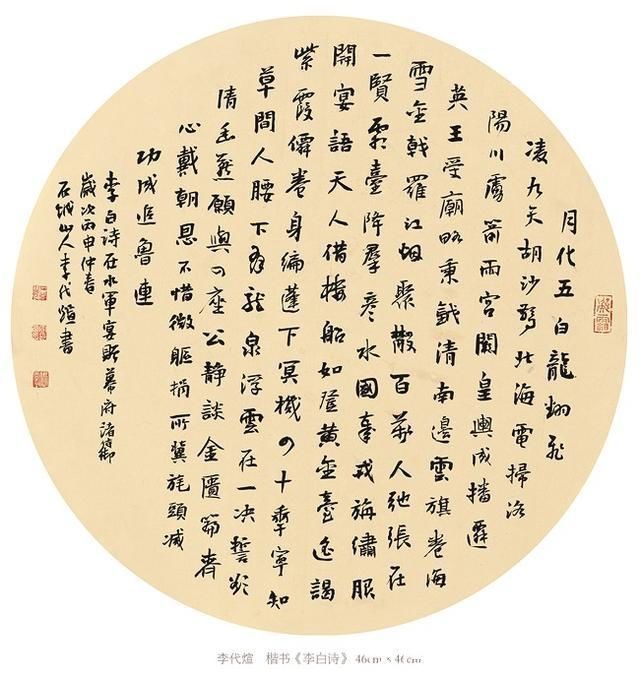 月化五白龍翻飛
凌九天胡沙驚北海電掃洛
陽川虜箭雨宮闕皇輿成播遷
英王受廟略秉鉞清南邊雲旗卷海
雪金戟羅江烟聚散百萬人弛張在
一賢霜臺降羣彥水國奉戎旃繡服
開宴語天人借樓船如登黃金臺遙謁
紫霞僊卷身編蓬下冥機四十年寧知
草間人腰下有龍泉浮雲在一決誓欲
清幽燕願與四座公靜談金匱篇齊
心戴朝恩不惜微軀捐所冀旄頭滅
功成追魯連
李白诗在水軍宴贈幕府諸侍御
歲次丙申仲春
石城山人李代煊書
李代煊 楷书《李白诗》 46cm×46cm